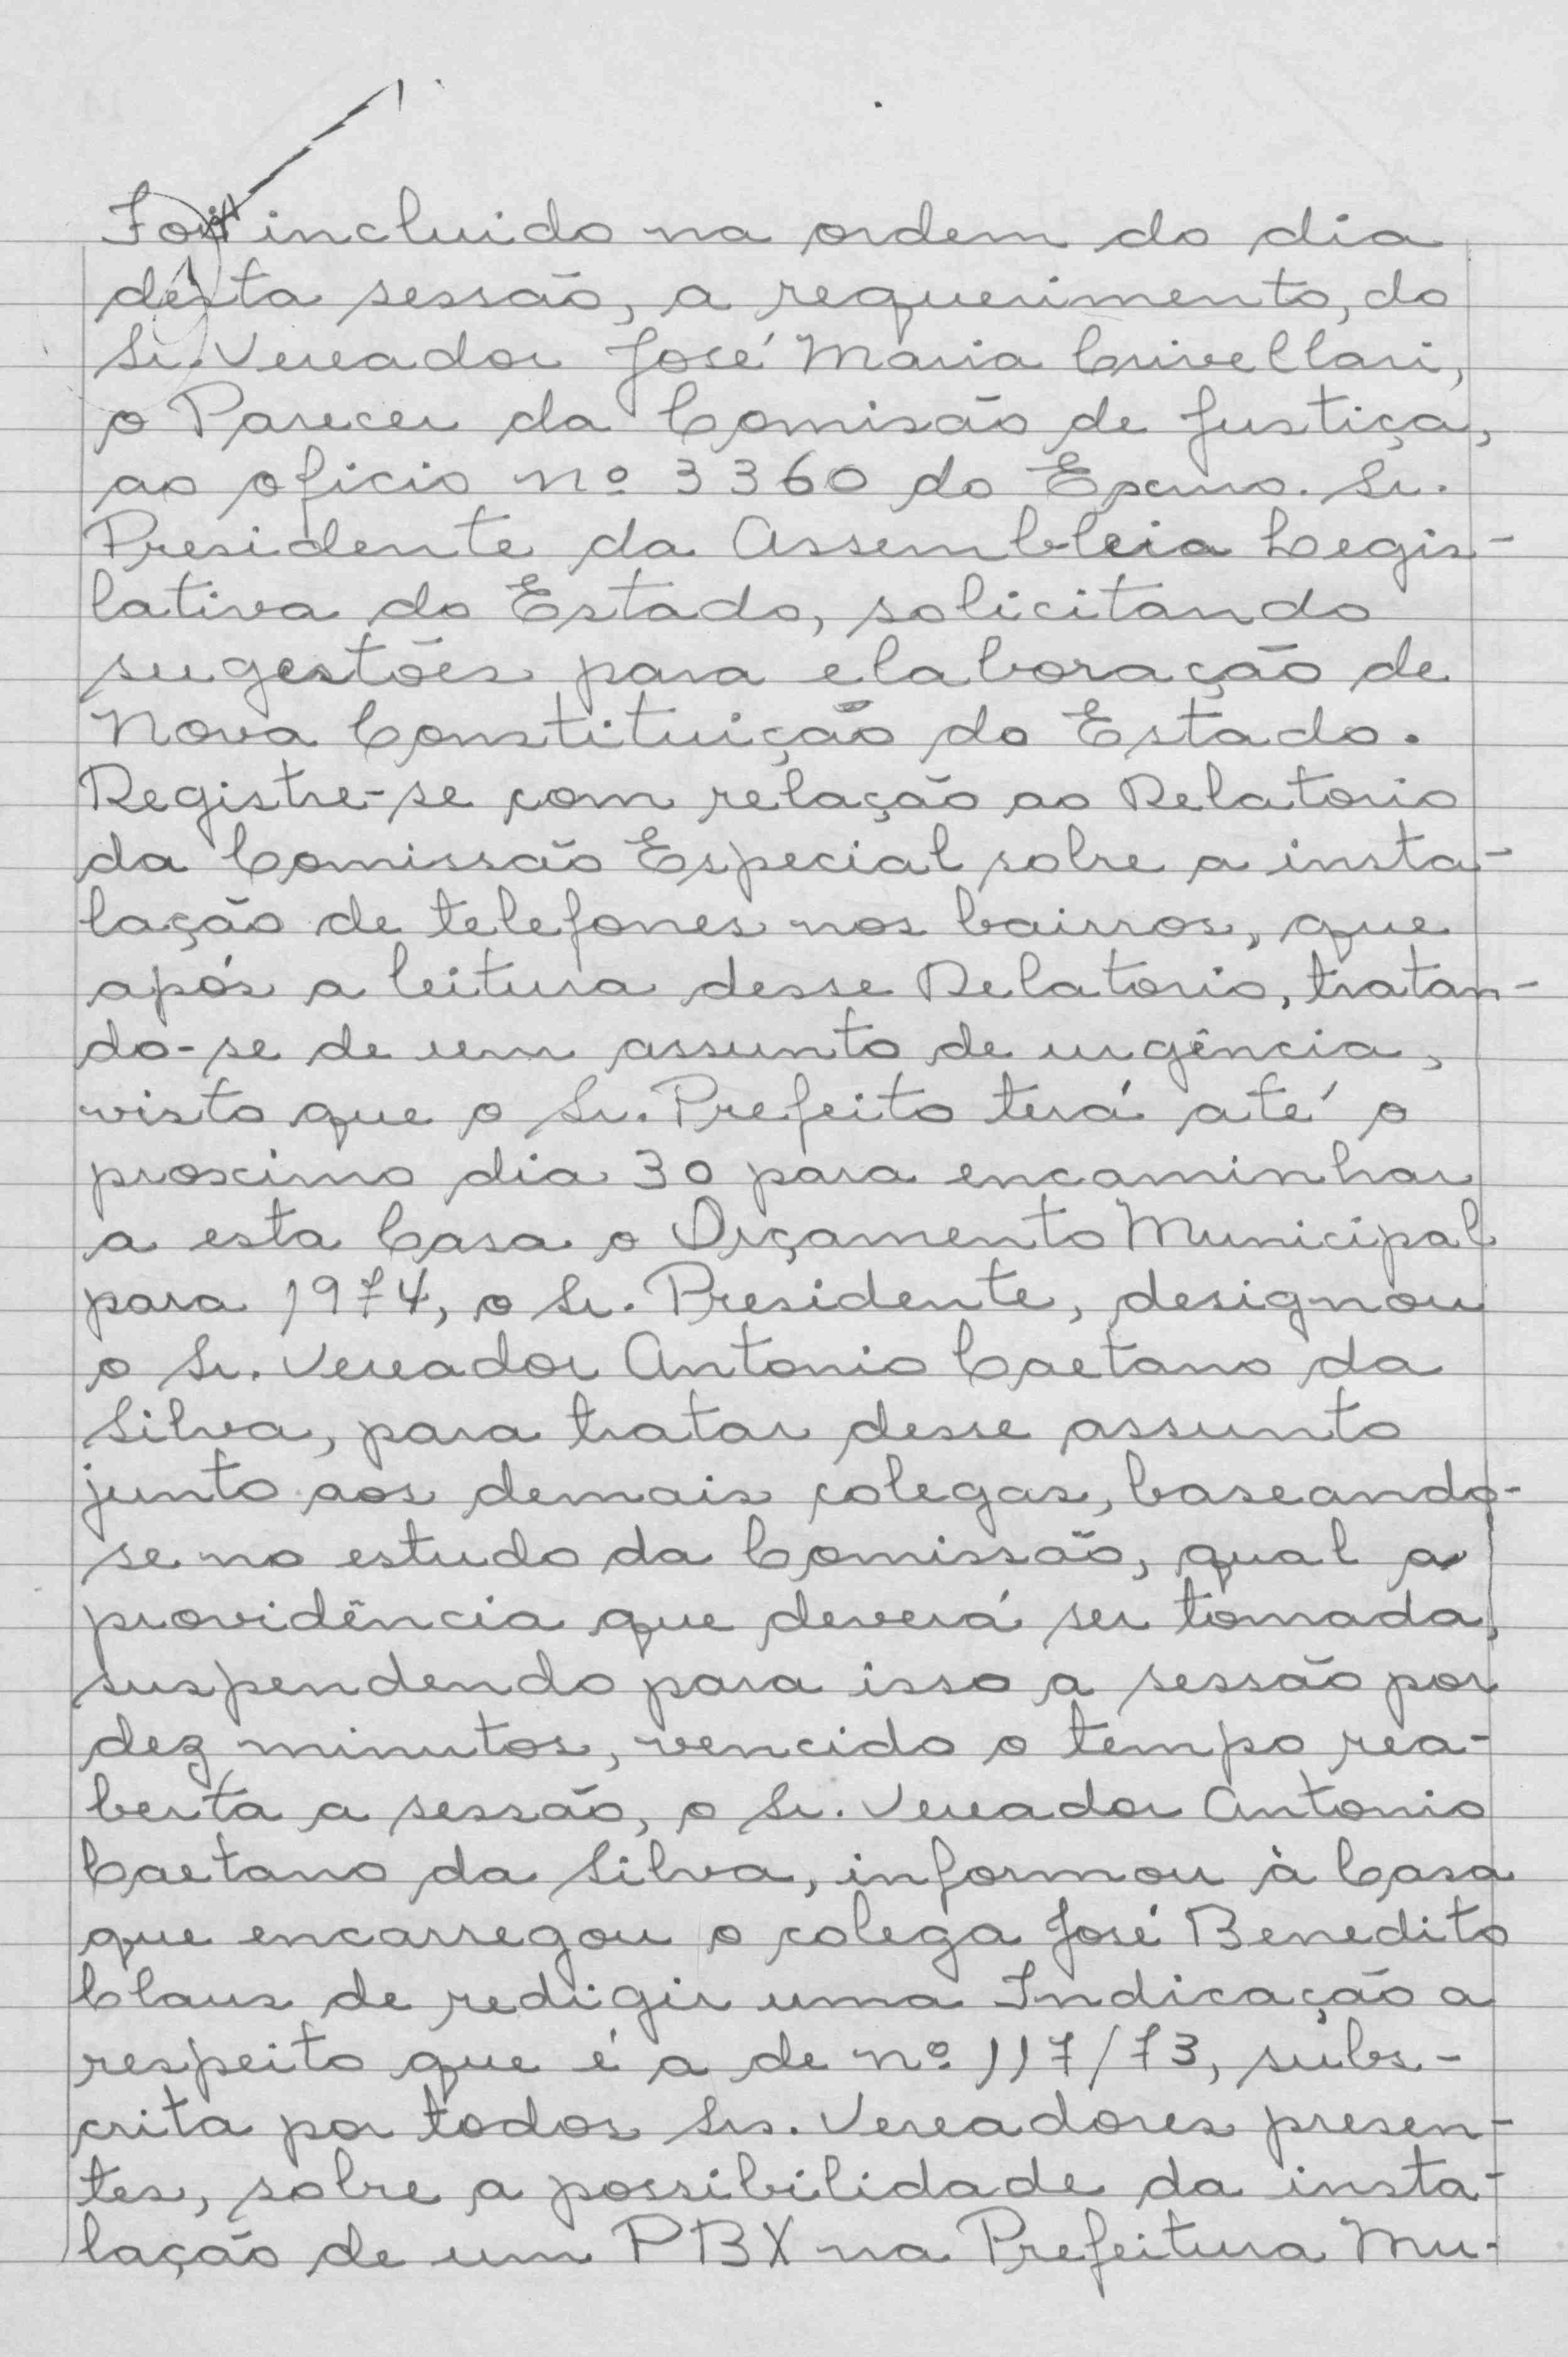 Foi incluido na ordem do dia
desta sessão, a requerimento, do
Sr. Vereador José Maria Crivellari,
o Parecer da Comisão de Justiça,
ao oficio nº 3360 do Excmo. Sr.
Presidente da Assembleia Legis-
lativa do Estado, solicitando
sugestões para elaboração de
Nova Constituição do Estado.
Registre-se com relação ao Relatorio
da Comissão Especial sobre a insta-
lação de telefones nos bairros, que
após a leitura desse Relatorio, tratan-
do-se de um assunto de urgência,
visto que o Sr. Prefeito terá até o
proscimo dia 30 para encaminhar
a esta Casa o Orçamento Municipal
para 1974, o Sr. Presidente, designou
o Sr. Vereador Antonio Caetano da
Silva, para tratar desse assunto
junto aos demais colegas, baseando-
se no estudo da Comissão, qual a
providência que deverá ser tomada,
suspendendo para isso a sessão por
dez minutos, vencido o tempo rea-
berta a sessão, o Sr. Vereador Antonio
Caetano da Silva, informou à Casa
que encarregou o colega José Benedito
Claus de redigir uma Indicação a
respeito que é a de nº 117/73, subs-
crita por todos Srs. Vereadores presen-
tes, sobre a possibilidade da insta-
lação de um PBX na Prefeitura Mu-